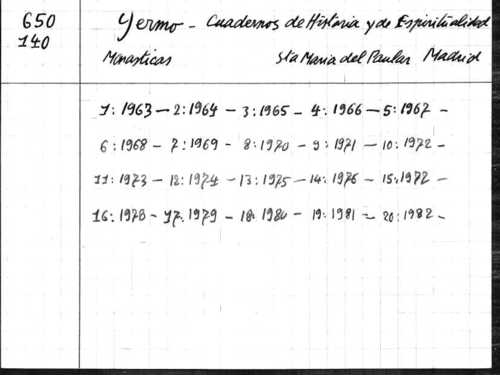 650
140
Yermo - Cuadernos de Historia y de Espiritualidad
Monasticas Sta Maria del Paular Madrid
1: 1963 - 2: 1964 - 3: 1965 - 4: 1966 - 5: 1967 -
6: 1968 - 7: 1969 - 8: 1970 - 9: 1971 - 10: 1972 -
11: 1973 - 12: 1974 - 13: 1975 - 14: 1976 - 15: 1977 -
16: 1978 - 17: 1979 - 18: 1980 - 19: 1981 - 20: 1982 -